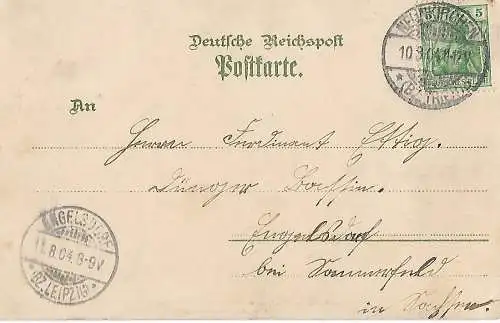 Deutsche Reichspost
Postkarte.
5
An
Herrn Ferdinant Ettig.
Engelsdorf
bei Sommerfeld
in Sachsen.
ENGELSDORF
11.8.04 8-9V
(BZ. LEIPZIG)